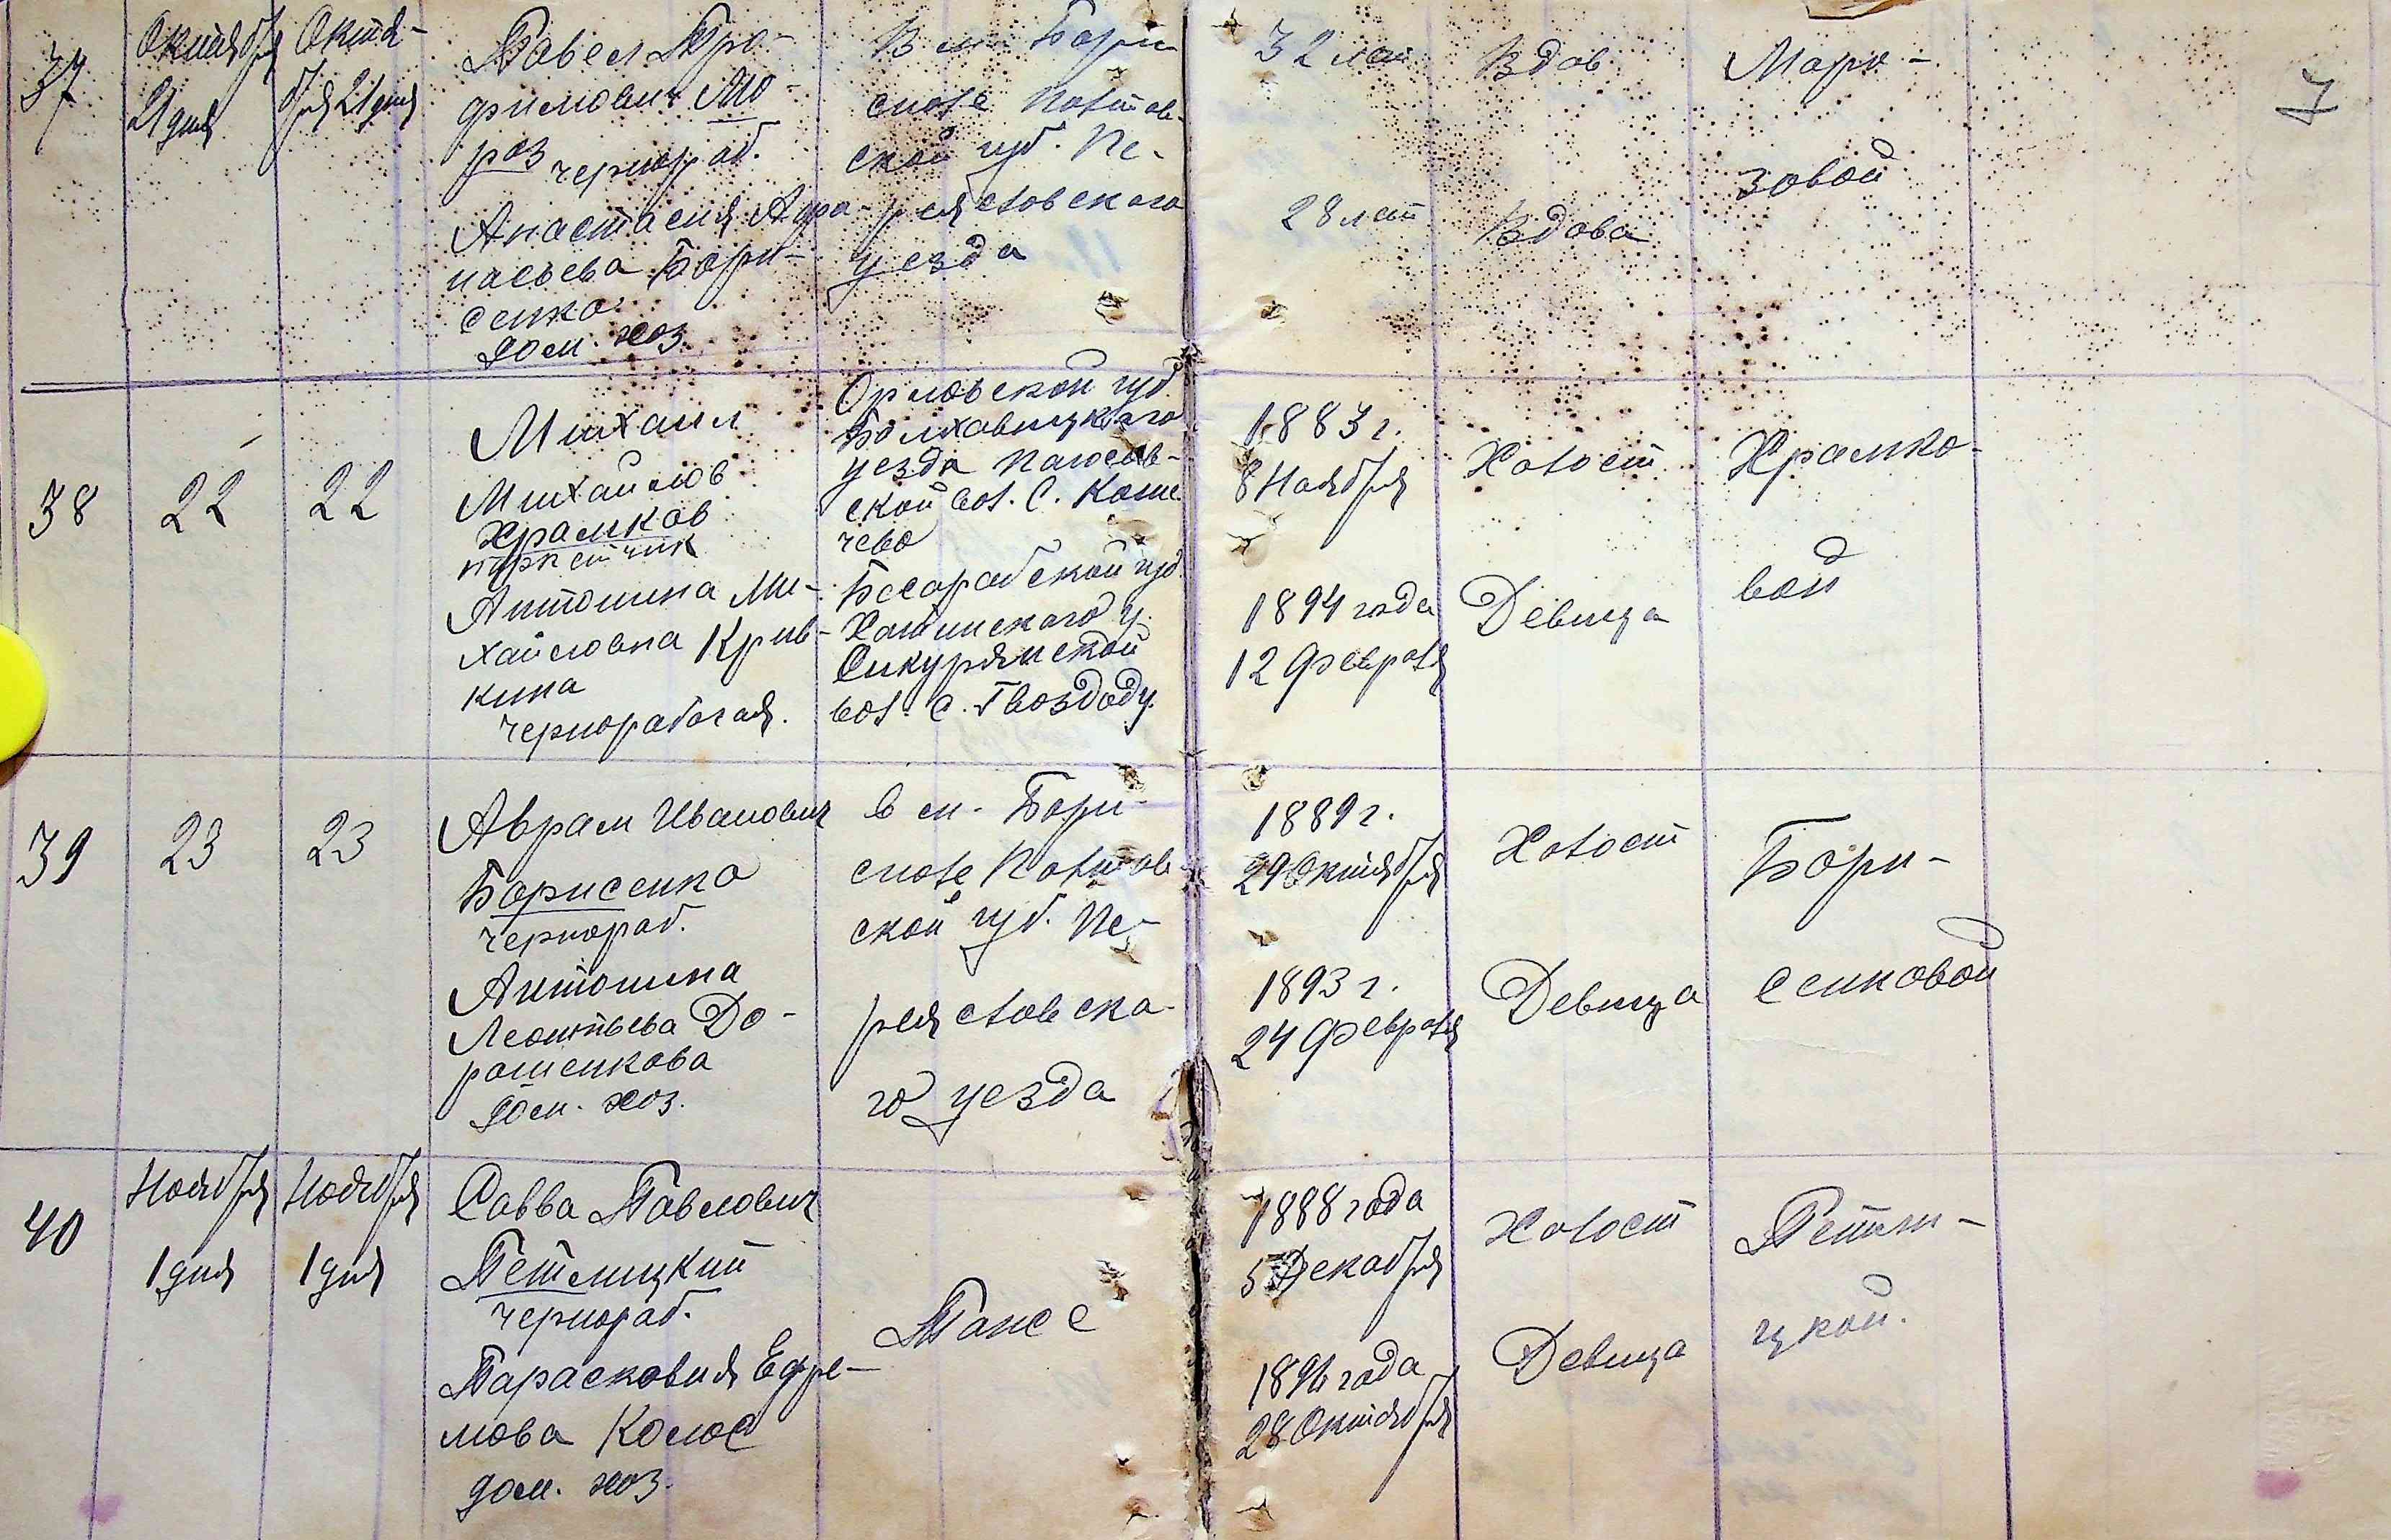 37
Октября
21 дня
Октя-
бря 21 дня
Павел Тро-
фимович Мо-
роз
чернораб.
Анастасия Афа-
насьева Бори-
сенко
дом. хоз.
В м. Бори-
споле Полтав-
ской губ. Пе-
реяславского
уезда
32 лет
28 лет
Вдов
Вдова
Моро-
зовой
7
38
22
22
Михаил
Михайлов
Храмков
Антонина Ми-
хайловна Крив-
кина
чернорабочая.
Орловской губ.
Болховицкого
уезда
ской вол. С.
чево
Бесарабской губ.
Хотинского у.
Секурянской
вол. с. Гвоздоуц.
1883 г.
8 Ноября
1894 года
12 Февраля
Холост
Девица
Храмко-
вой
39
23
23
Аврам Иванович
Борисенко
чернораб.
Антонина
Леонтьева До-
рошенкова
дом. хоз.
в м. Бори-
споле Полтав-
ской губ. Пе-
реяславско-
го уезда
1889 г.
29 Октября
1893 г.
24 Февраля
Холост
Девица
Бори-
сенковой
40
Ноября
1 дня
Ноября
1 дня
Савва Павлович
Петлицкий
чернораб.
Парасковия Ефре-
мова Колос
дом. хоз.
Тоже
1888 года
5 Декабря
28 Октября
Холост
Девица
Петли-
цкой.